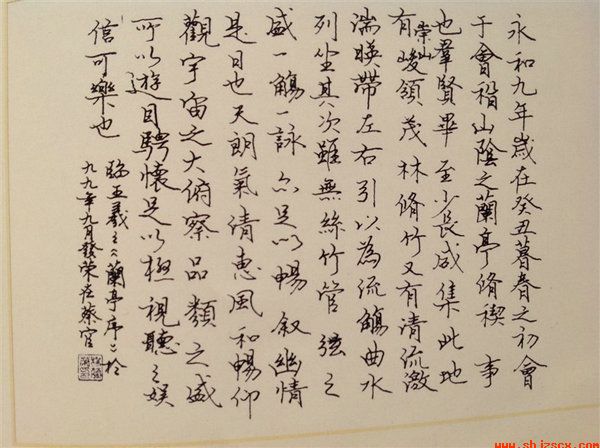 永和九年歲在癸丑暮春之初會
于會稽山陰之蘭亭脩禊事
也羣賢畢至少長咸集此地
有崇山峻領茂林脩竹又有清流激
湍暎帶左右引以為流觴曲水
列坐其次雖無絲竹管弦之
盛一觴一詠亦足以暢叙幽情
是日也天朗氣清惠風和暢仰
觀宇宙之大俯察品類之盛
所以遊目騁懷足以極視聽之娛
信可樂也
臨王羲之蘭亭序於
九九年九月發榮在蔡官
www.shjzscx.com